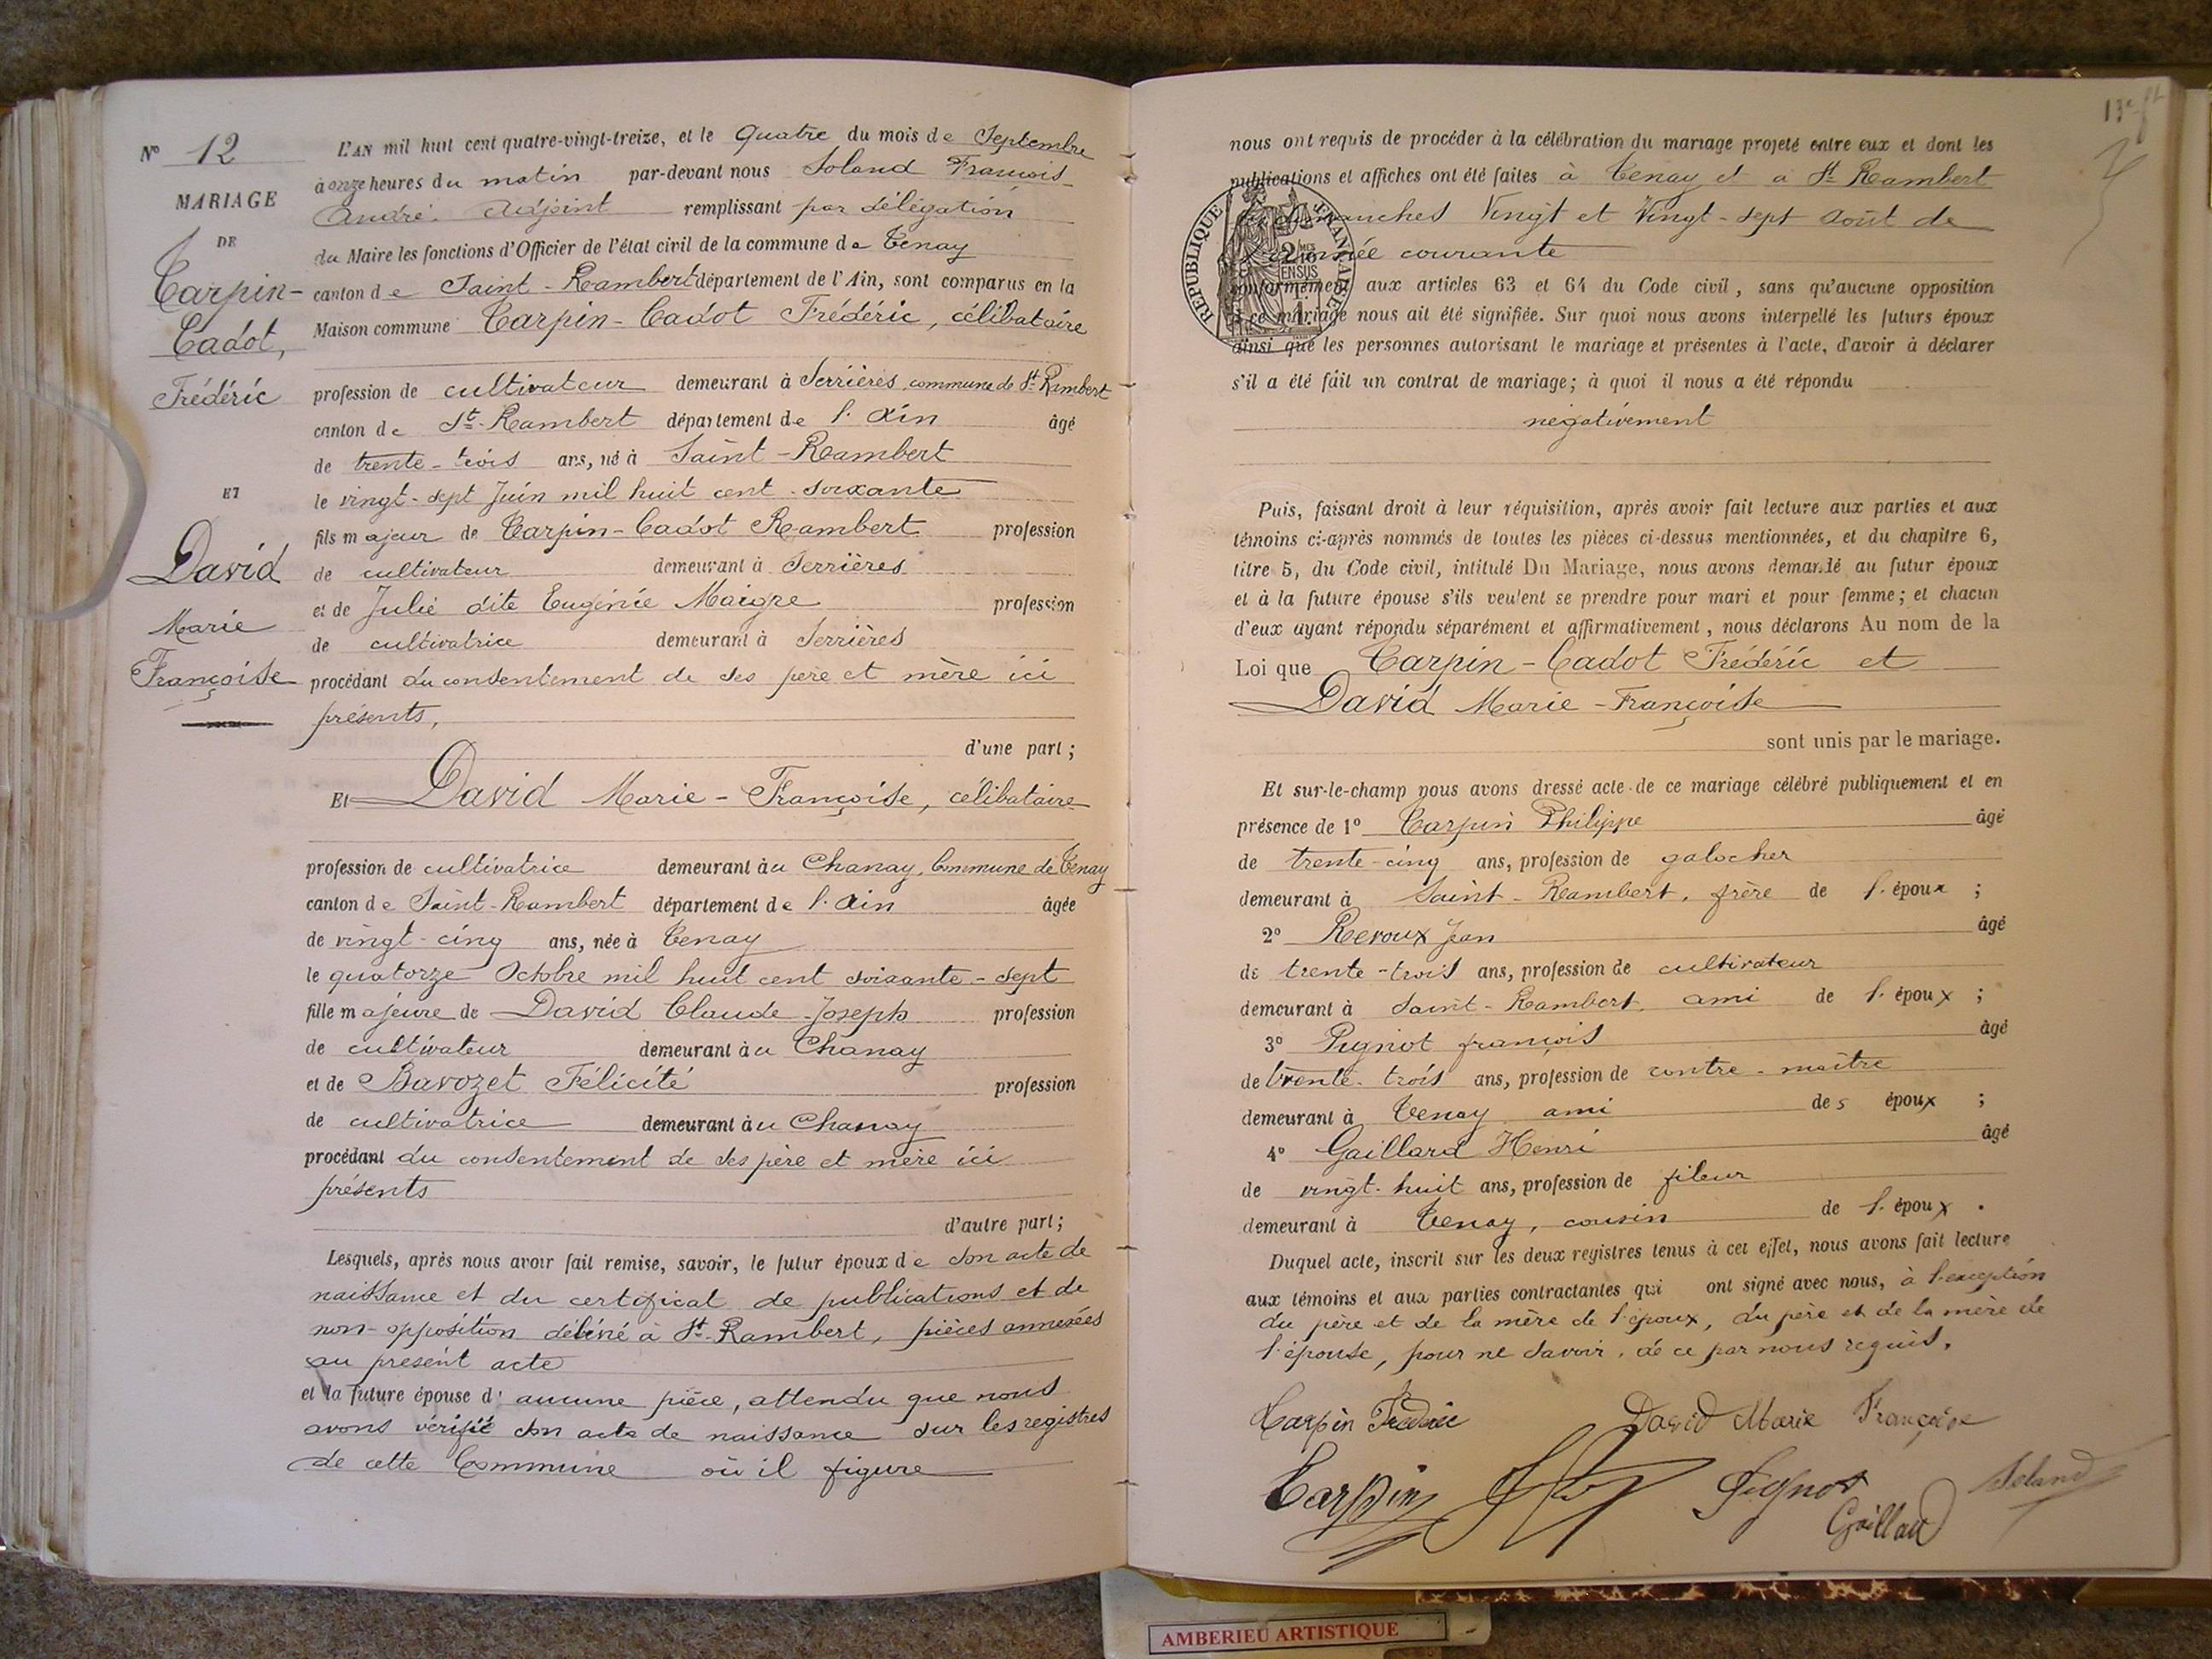 N° 12
MARIAGE
DE
Carpin-
Cadot,
Frédéric
ET
David
Marie
Françoise
L'AN mil huit cent quatre-vingt-treize, et le Quatre du mois de Septembre
à onze heures du matin par-devant nous Soland François
André Adjoint remplissant par délégation
du Maire les fonctions d'Officier de l'état civil de la commune de Tenay
canton de Saint-Rambert département de l'Ain, sont comparus en la
Maison commune Carpin-Cadot Frédéric, célibataire
profession de cultivateur demeurant à Serrières, commune de St Rambert
canton de St-Rambert département de l'Ain âgé
de trente-trois ans, né à Saint-Rambert
le vingt-sept Juin mil huit cent soixante
fils majeur de Carpin-Cadot Rambert profession
de cultivateur demeurant à Serrières
et de Julie dite Eugénie Maigre profession
de cultivatrice demeurant à Serrières
procédant du consentement de ses père et mère ici
présents,
d'une part;
Et David Marie-Françoise, célibataire
profession de cultivatrice demeurant au Chanay, Commune de Tenay
canton de Saint-Rambert département de l'Ain âgée
de vingt-cinq ans, née à Tenay
le quatorze Octobre mil huit cent soixante-sept
fille majeure de David Claude-Joseph profession
de cultivateur demeurant au Chanay
et de Bavozet Félicité profession
de cultivatrice demeurant au Chanay
procédant du consentement de ses père et mère ici
présents
d'autre part;
Lesquels, après nous avoir fait remise, savoir, le futur époux de son acte de
naissance et du certificat de publications et de
non-opposition délivré à St-Rambert, pièces annexées
au présent acte
et la future épouse d'aucune pièce, attendu que nous
avons vérifié son acte de naissance sur les registres
de cette Commune où il figure
13e ft
nous ont requis de procéder à la célébration du mariage projeté entre eux et dont les
publications et affiches ont été faites à Tenay et à St Rambert
les dimanches Vingt et Vingt-sept Août de
l'année courante
conformément aux articles 63 et 64 du Code civil, sans qu'aucune opposition
à ce mariage nous ait été signifiée. Sur quoi nous avons interpellé les futurs époux
ainsi que les personnes autorisant le mariage et présentes à l'acte, d'avoir à déclarer
s'il a été fait un contrat de mariage; à quoi il nous a été répondu
négativement
RÉPUBLIQUE FRANÇAISE
Puis, faisant droit à leur réquisition, après avoir fait lecture aux parties et aux
témoins ci-après nommés de toutes les pièces ci-dessus mentionnées, et du chapitre 6,
titre 5, du Code civil, intitulé Du Mariage, nous avons demandé au futur époux
et à la future épouse s'ils veulent se prendre pour mari et pour femme; et chacun
d'eux ayant répondu séparément et affirmativement, nous déclarons Au nom de la
Loi que Carpin-Cadot Frédéric et
David Marie-Françoise
sont unis par le mariage.
Et sur-le-champ nous avons dressé acte de ce mariage célébré publiquement et en
présence de 1° Carpin Philippe âgé
de trente-cinq ans, profession de galocher
demeurant à Saint-Rambert, frère de l'époux ;
2° Revoux Jean âgé
de trente-trois ans, profession de cultivateur
demeurant à Saint-Rambert, ami de l'époux ;
3° Pugniot françois âgé
de trente-trois ans, profession de contre-maître
demeurant à Tenay ami des époux ;
4° Gaillard Henri âgé
de vingt-huit ans, profession de fileur
demeurant à Tenay, cousin de l'époux .
Duquel acte, inscrit sur les deux registres tenus à cet effet, nous avons fait lecture
aux témoins et aux parties contractantes qui ont signé avec nous, à l'exception
du père et de la mère de l'époux, du père et de la mère de
l'épouse, pour ne savoir, de ce par nous requis.
Carpin Frédéric David Marie Françoise
Carpin Soland
Gaillard
AMBERIEU ARTISTIQUE